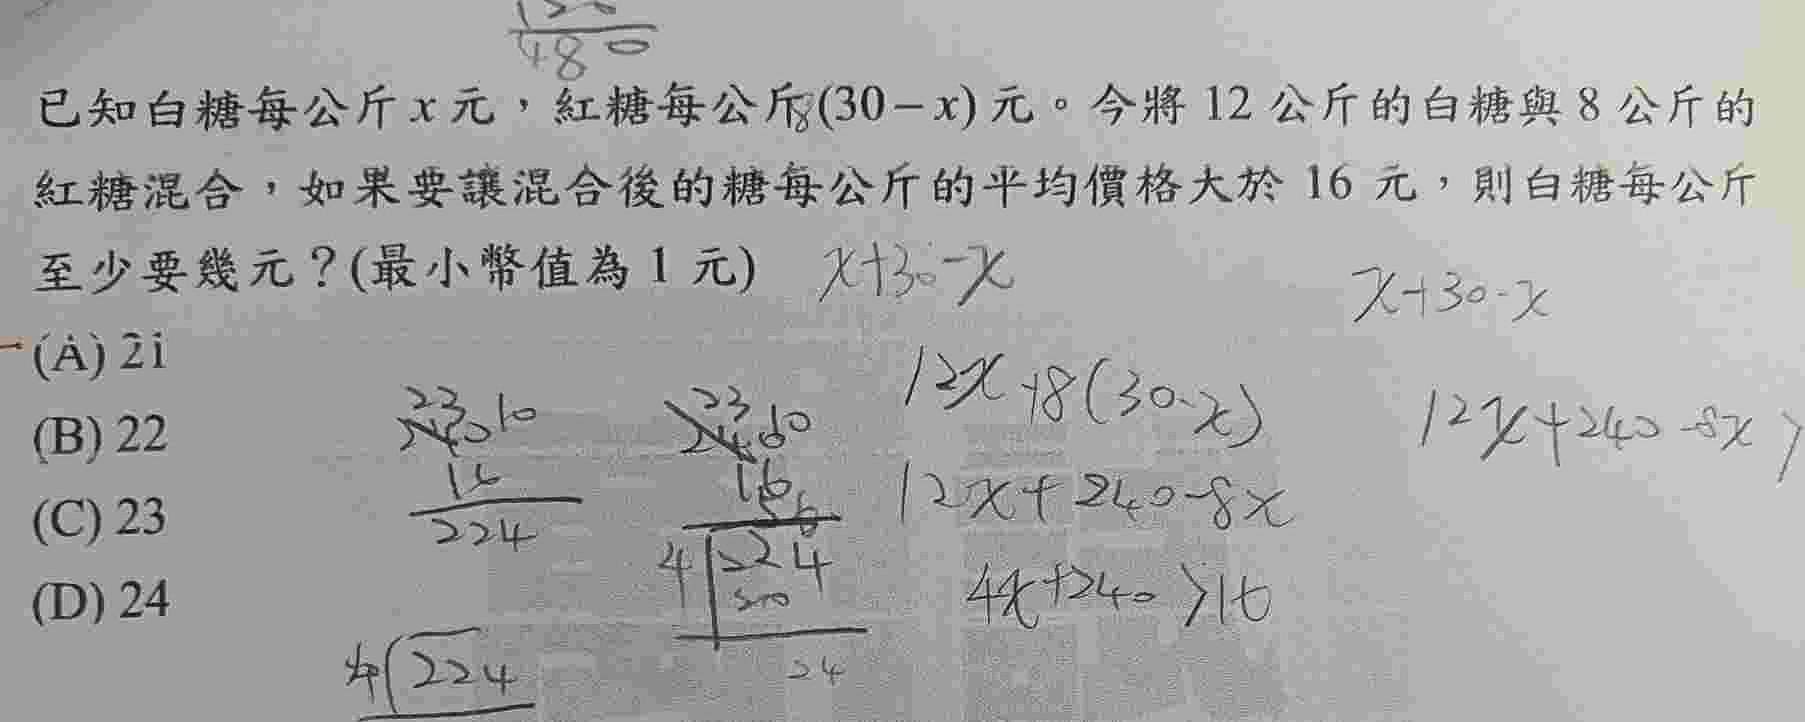 480
已知白糖每公斤 x 元，紅糖每公斤 8(30－x) 元。今將 12 公斤的白糖與 8 公斤的
紅糖混合，如果要讓混合後的糖每公斤的平均價格大於 16 元，則白糖每公斤
至少要幾元？(最小幣值為 1 元)
x+30-x
x+30-x
(A) 21
(B) 22
(C) 23
(D) 24
23 10
240
16
224
23
10
16
56
4 224
200
24
4 224
12x+8(30-x)
12x+240-8x
4x+240>16
12x+240-8x>